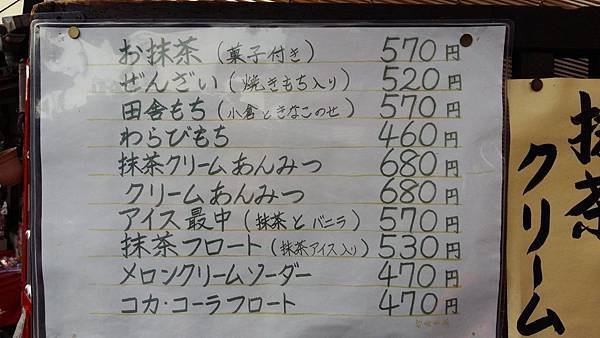 お抹茶(菓子付き) 570円
ぜんざい(焼きもち入り) 520円
田舎もち(小倉ときなこのせ) 570円
わらびもち 460円
抹茶クリームあんみつ 680円
クリームあんみつ 680円
アイス最中(抹茶とバニラ) 570円
抹茶フロート(抹茶アイス入り) 530円
メロンクリームソーダー 470円
コカ・コーラフロート 470円
抹茶
クリーム